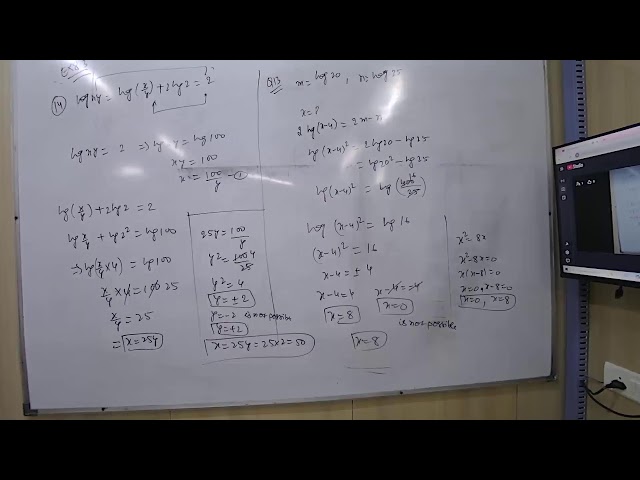 (14) log xy = log(x/y) + 2 log 2 = 2
log xy = 2 ⇒ log xy = log 100
xy = 100
x = 100/y - ①
log(x/y) + 2 log 2 = 2
log x/y + log 2² = log 100
⇒ log(x/y × 4) = log 100
x/y × 4 = 100 25
x/y = 25
= x = 25y
25y = 100/y
y² = 100 4/25
y² = 4
y = ± 2
y = -2 is not possible
y = +2
x = 25y = 25×2 = 50
Q13 m = log 20, n = log 25
x = ?
2 log(x-4) = 2m - n
log(x-4)² = 2 log 20 - log 25
= log 20² - log 25
log(x-4)² = log(400 16/25)
log (x-4)² = log 16
(x-4)² = 16
x-4 = ± 4
x-4 = 4
x = 8
x-4 = -4
x = 0
is not possible
x = 8
x² = 8x
x² - 8x = 0
x(x-8) = 0
x = 0, x-8 = 0
x = 0, x = 8